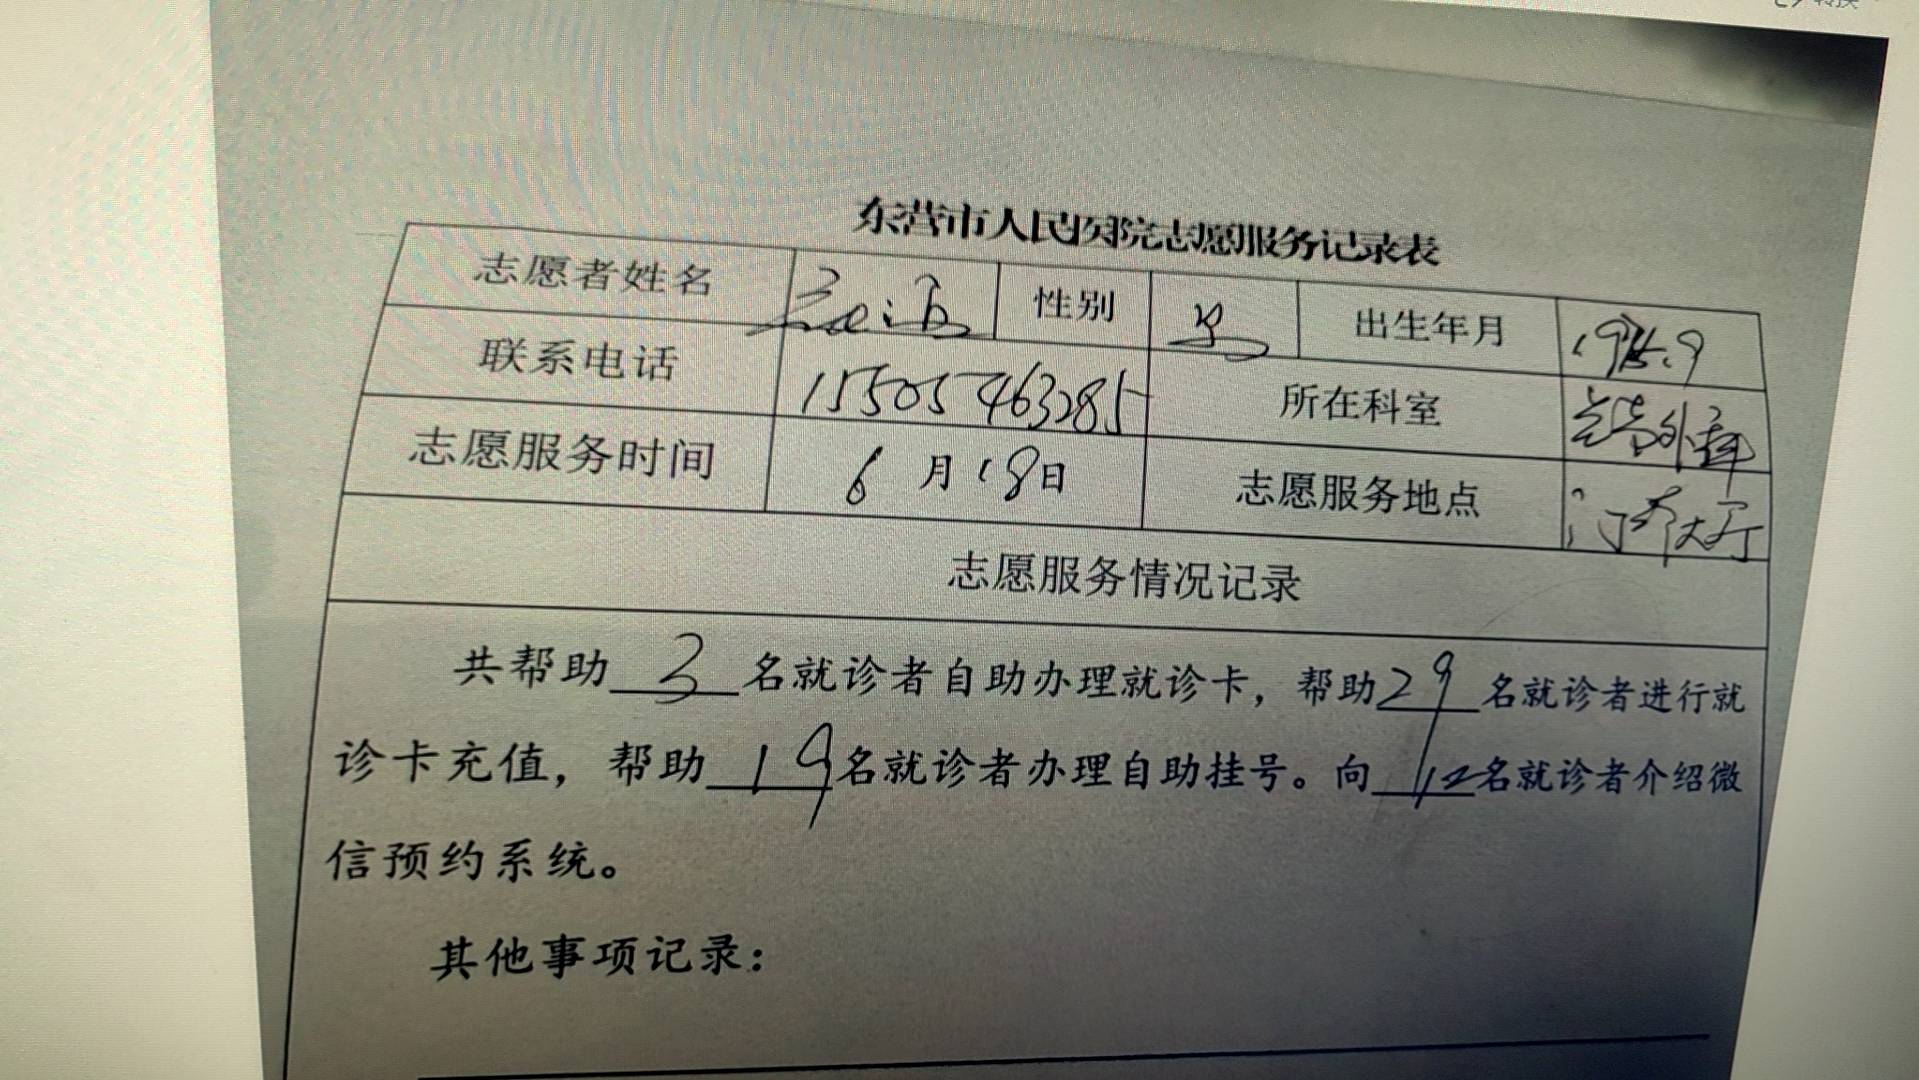 转换
东营市人民医院志愿服务记录表
志愿者姓名 性别 男 出生年月
联系电话 15505463285 所在科室
志愿服务时间 6月18日 志愿服务地点 门诊大厅
志愿服务情况记录
共帮助 3 名就诊者自助办理就诊卡，帮助 29 名就诊者进行就
诊卡充值，帮助 19 名就诊者办理自助挂号。向 12 名就诊者介绍微
信预约系统。
其他事项记录：